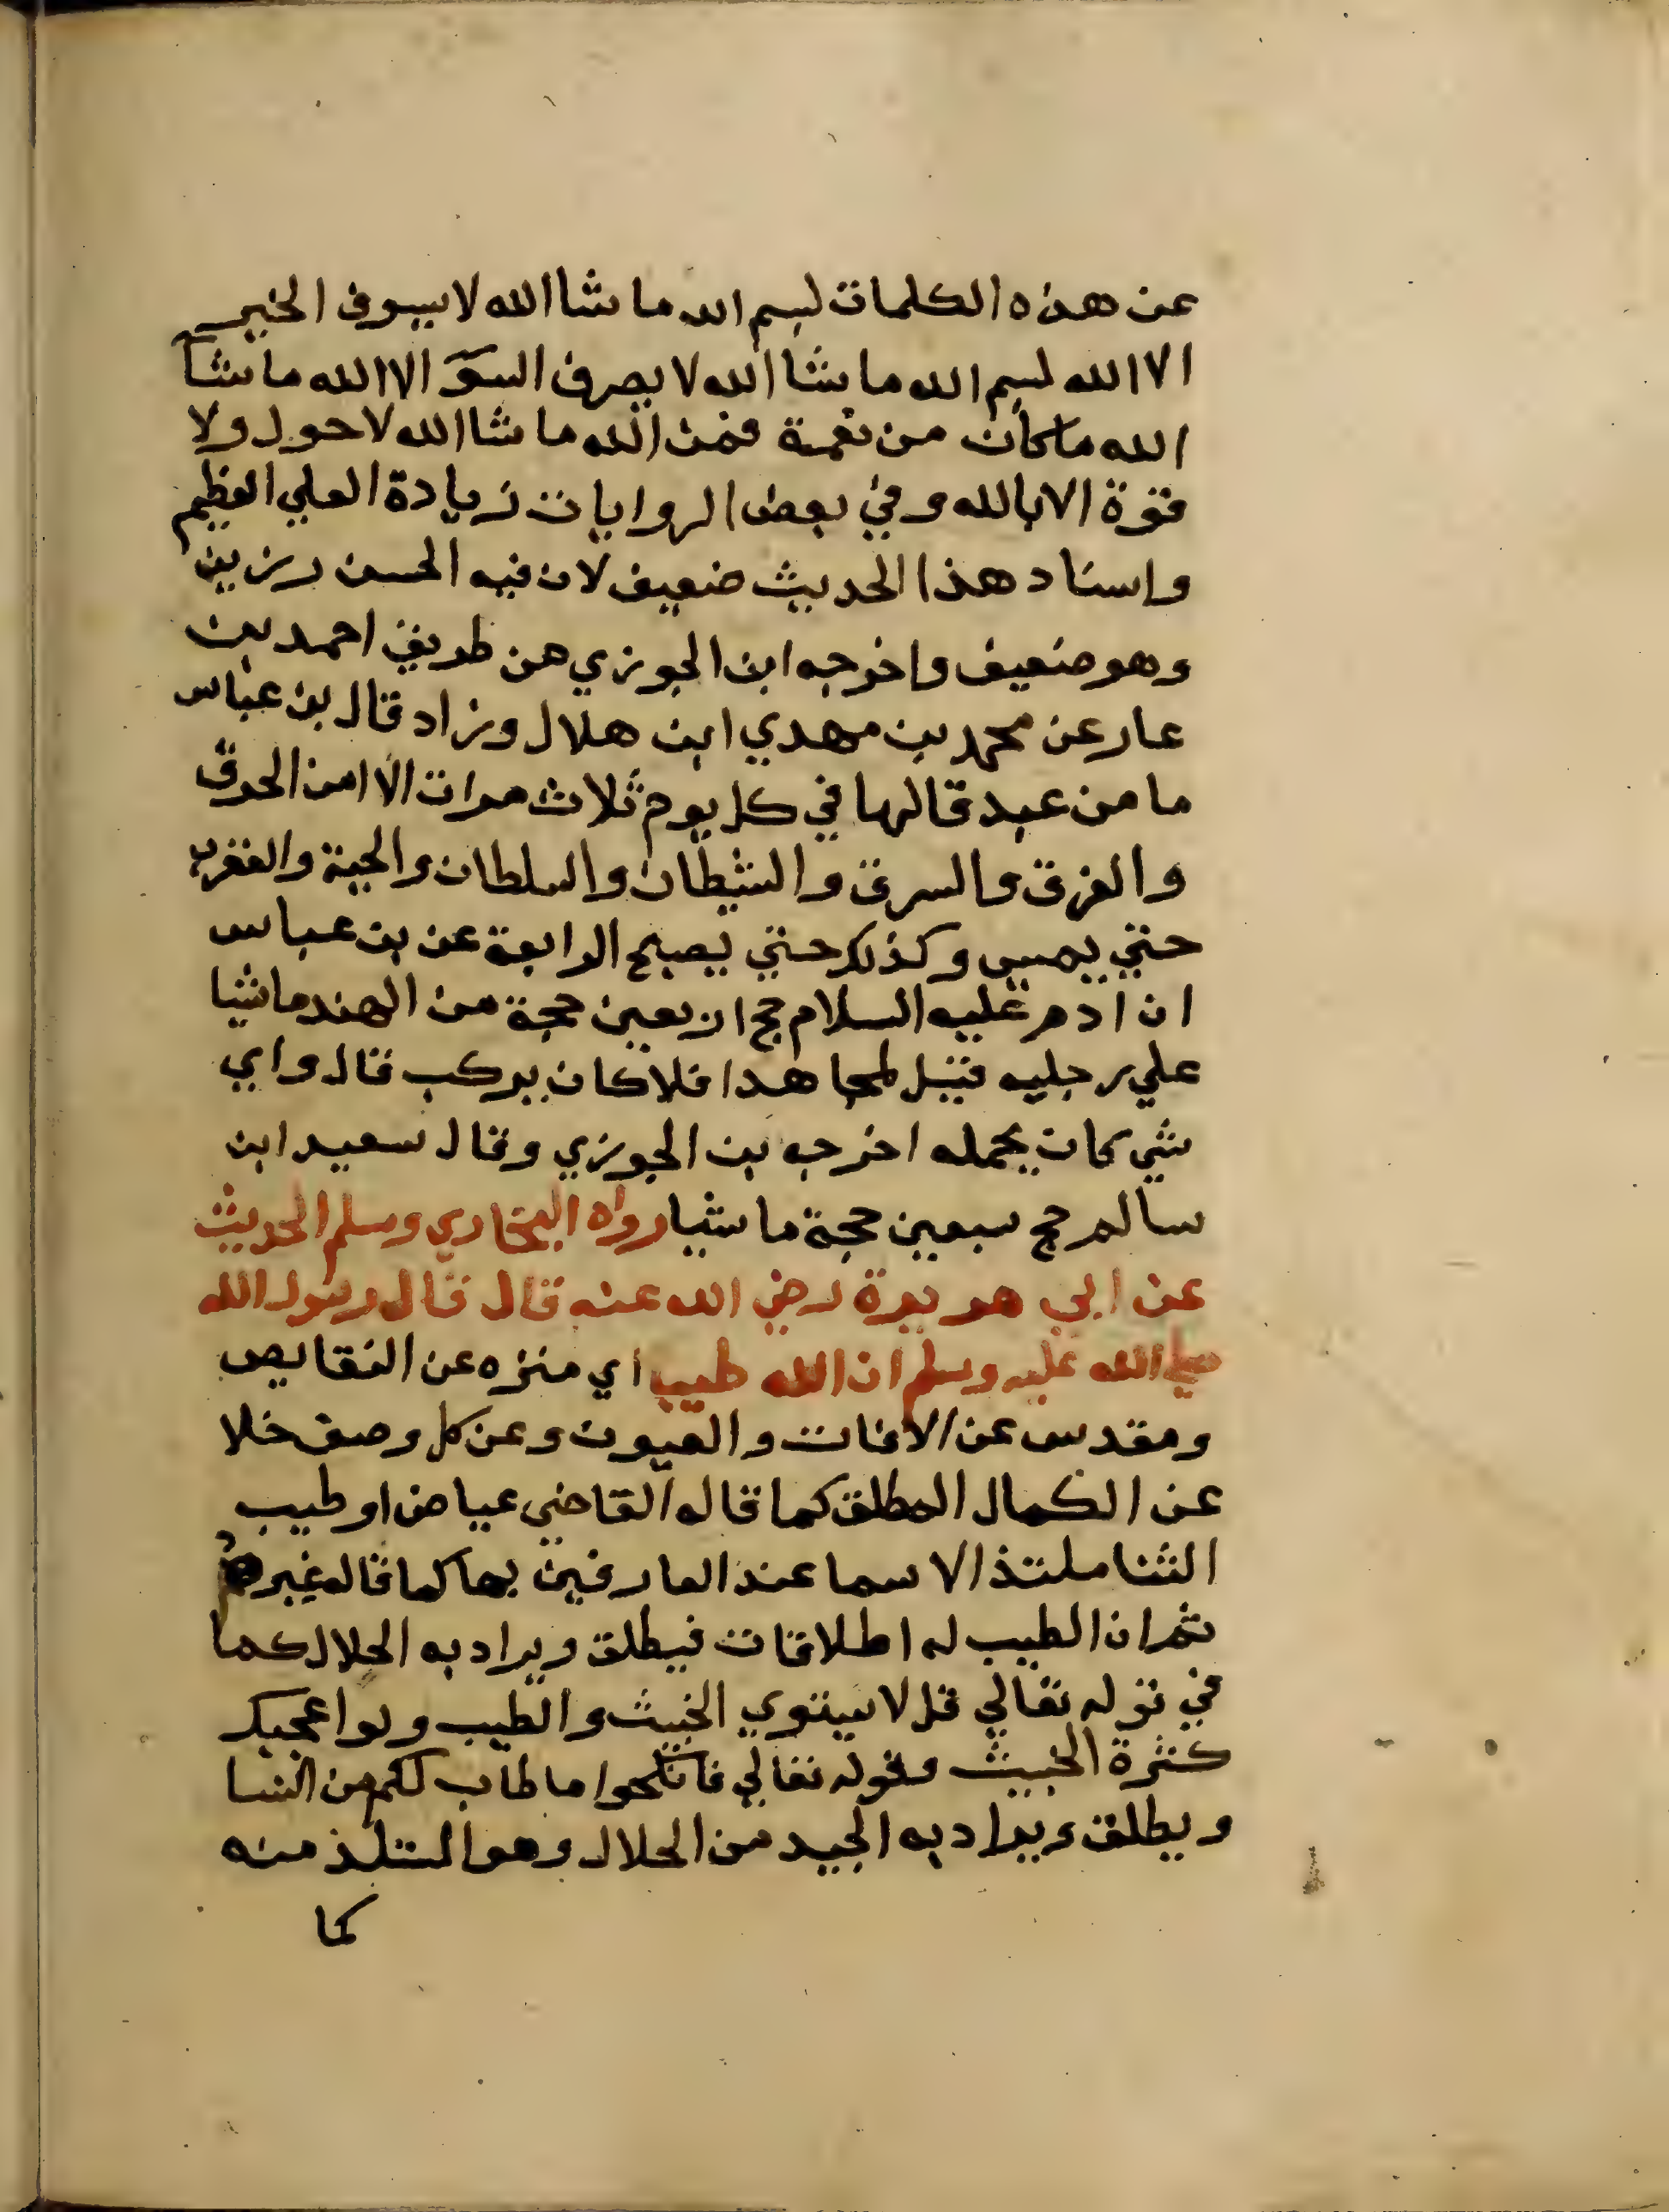 عن هذه الكلمات بسم الله ما شا الله لا يسوق الخير
الا الله بسم الله ما شا الله لا يصرف السوَٓ الا الله ما شآ
الله ما كان من نعمة فمن الله ما شا الله لا حول ولا
قوة الا بالله وفي بعض الروايات زيادة العلي العظيم
واسناد هذا الحديث ضعيف لان فيه الحسن رزين
وهو ضعيف واخرجه ابن الجوزي من طريق احمد بن
عمار عن محمد بن مهدي ابن هلال وزاد قال بن عباس
ما من عبد قالها في كل يوم ثلاث مرات الا امن الحرق
والغرق والسرق والشيطان والسلطان والحية والعقرب
حتي يمسي وكذلك حتي يصبح الرابعة عن بن عباس
ان ادم عليه السلام حج اربعين حجة من الهند ماشيا
علي رجليه فقيل لمجاهد افلا كان يركب قال واي
شي كان يحمله اخرجه بن الجوزي وقال سعيد ابن
سالم حج سبعين حجة ماشيا رواه البخاري ومسلم الحديث
عن ابي هريرة رضي الله عنه قال قال رسول الله
صلي الله عليه وسلم ان الله طيب اي منزه عن النقايص
ومقدس عن الافات والعيوب وعن كل وصف خلا
عن الكمال المطلق كما قاله القاضي عياض او طيب
الثنا ملتذ الاسما عند العارفين بها كما قاله غيرهم
ثم ان الطيب له اطلاقات فيطلق ويراد به الحلال كما
في قوله تعالي قل لا يستوي الخبيث والطيب ولو اعجبك
كثرة الخبيث وقوله تعالي فانكحوا ما طاب لكم من النسا
ويطلق ويراد به الجيد من الحلال وهو المستلذ منه
كما